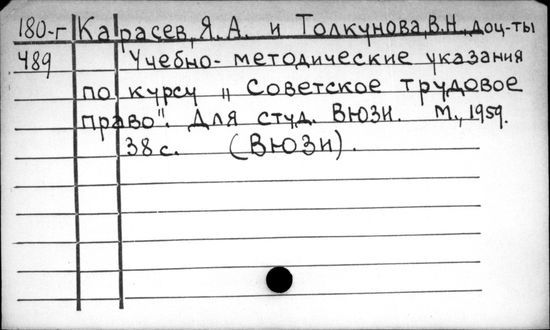 180-г Карасев, Я.А. и Толкунова, В.Н., доц-ты
489 Учебно-методические указания
по курсу „Советское трудовое
право". Для студ. ВЮЗИ. М., 1959.
38 с. (ВЮЗИ).